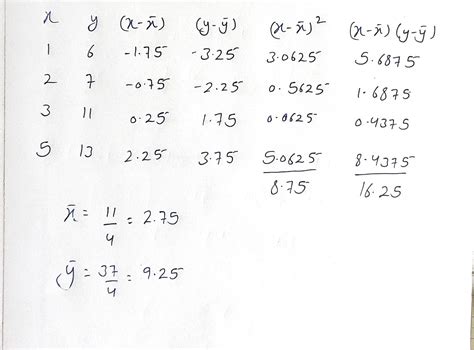 x y (x-x̄) (y-ȳ) (x-x̄)² (x-x̄)(y-ȳ)
1 6 -1.75 -3.25 3.0625 5.6875
2 7 -0.75 -2.25 0.5625 1.6875
3 11 0.25 1.75 0.0625 0.4375
5 13 2.25 3.75 5.0625 8.4375
8.75 16.25
x̄ = 11/4 = 2.75
ȳ = 37/4 = 9.25